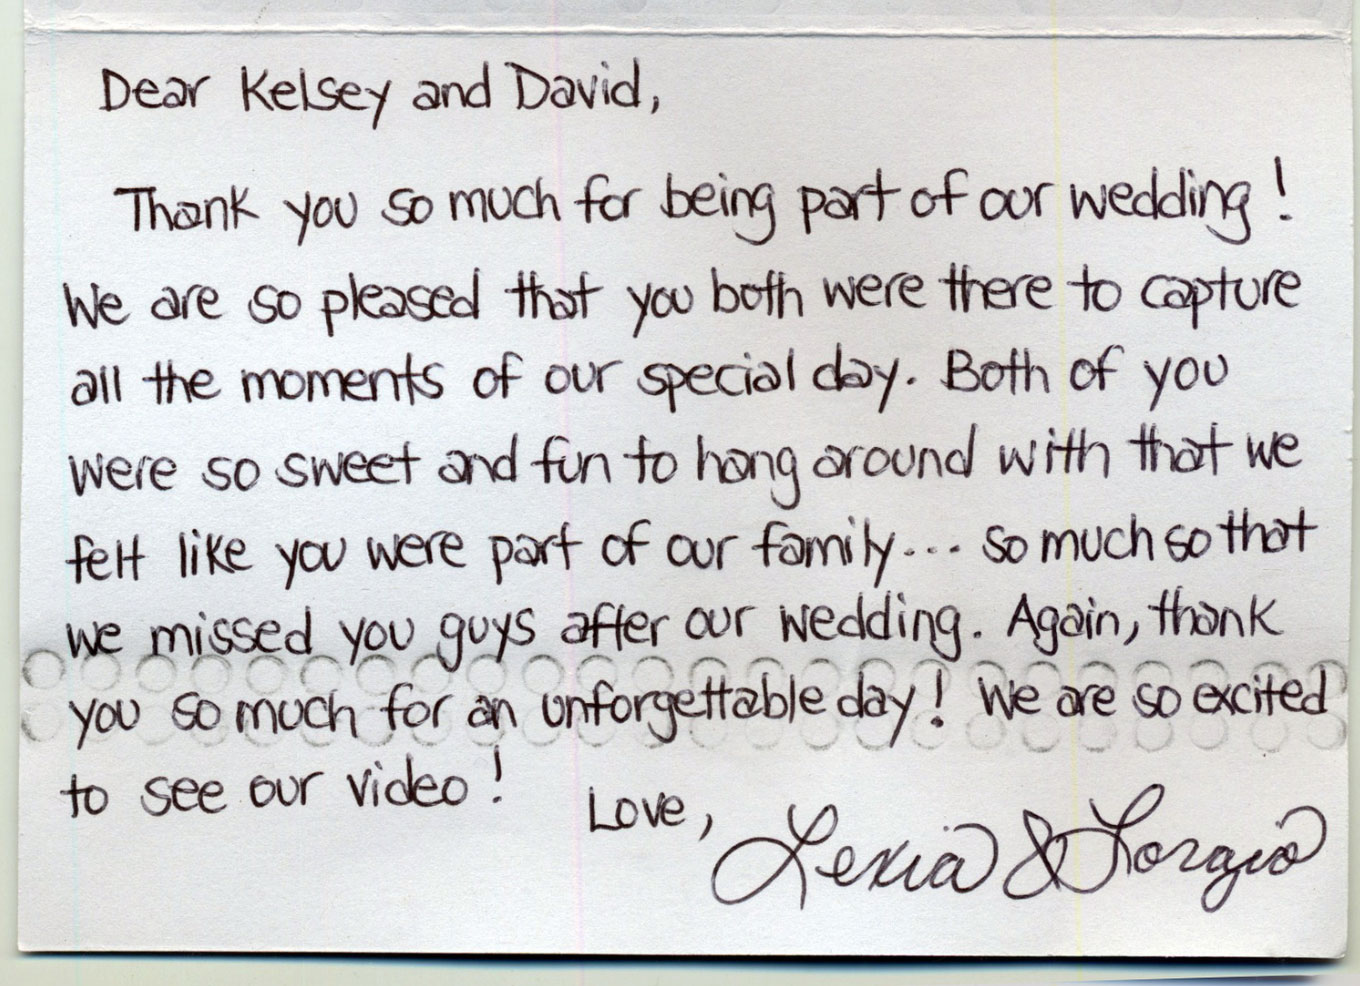 Dear Kelsey and David,
Thank you so much for being part of our wedding!
We are so pleased that you both were there to capture
all the moments of our special day. Both of you
were so sweet and fun to hang around with that we
felt like you were part of our family... so much so that
we missed you guys after our wedding. Again, thank
you so much for an unforgettable day! We are so excited
to see our video!
Love, Lexia & Lorgio